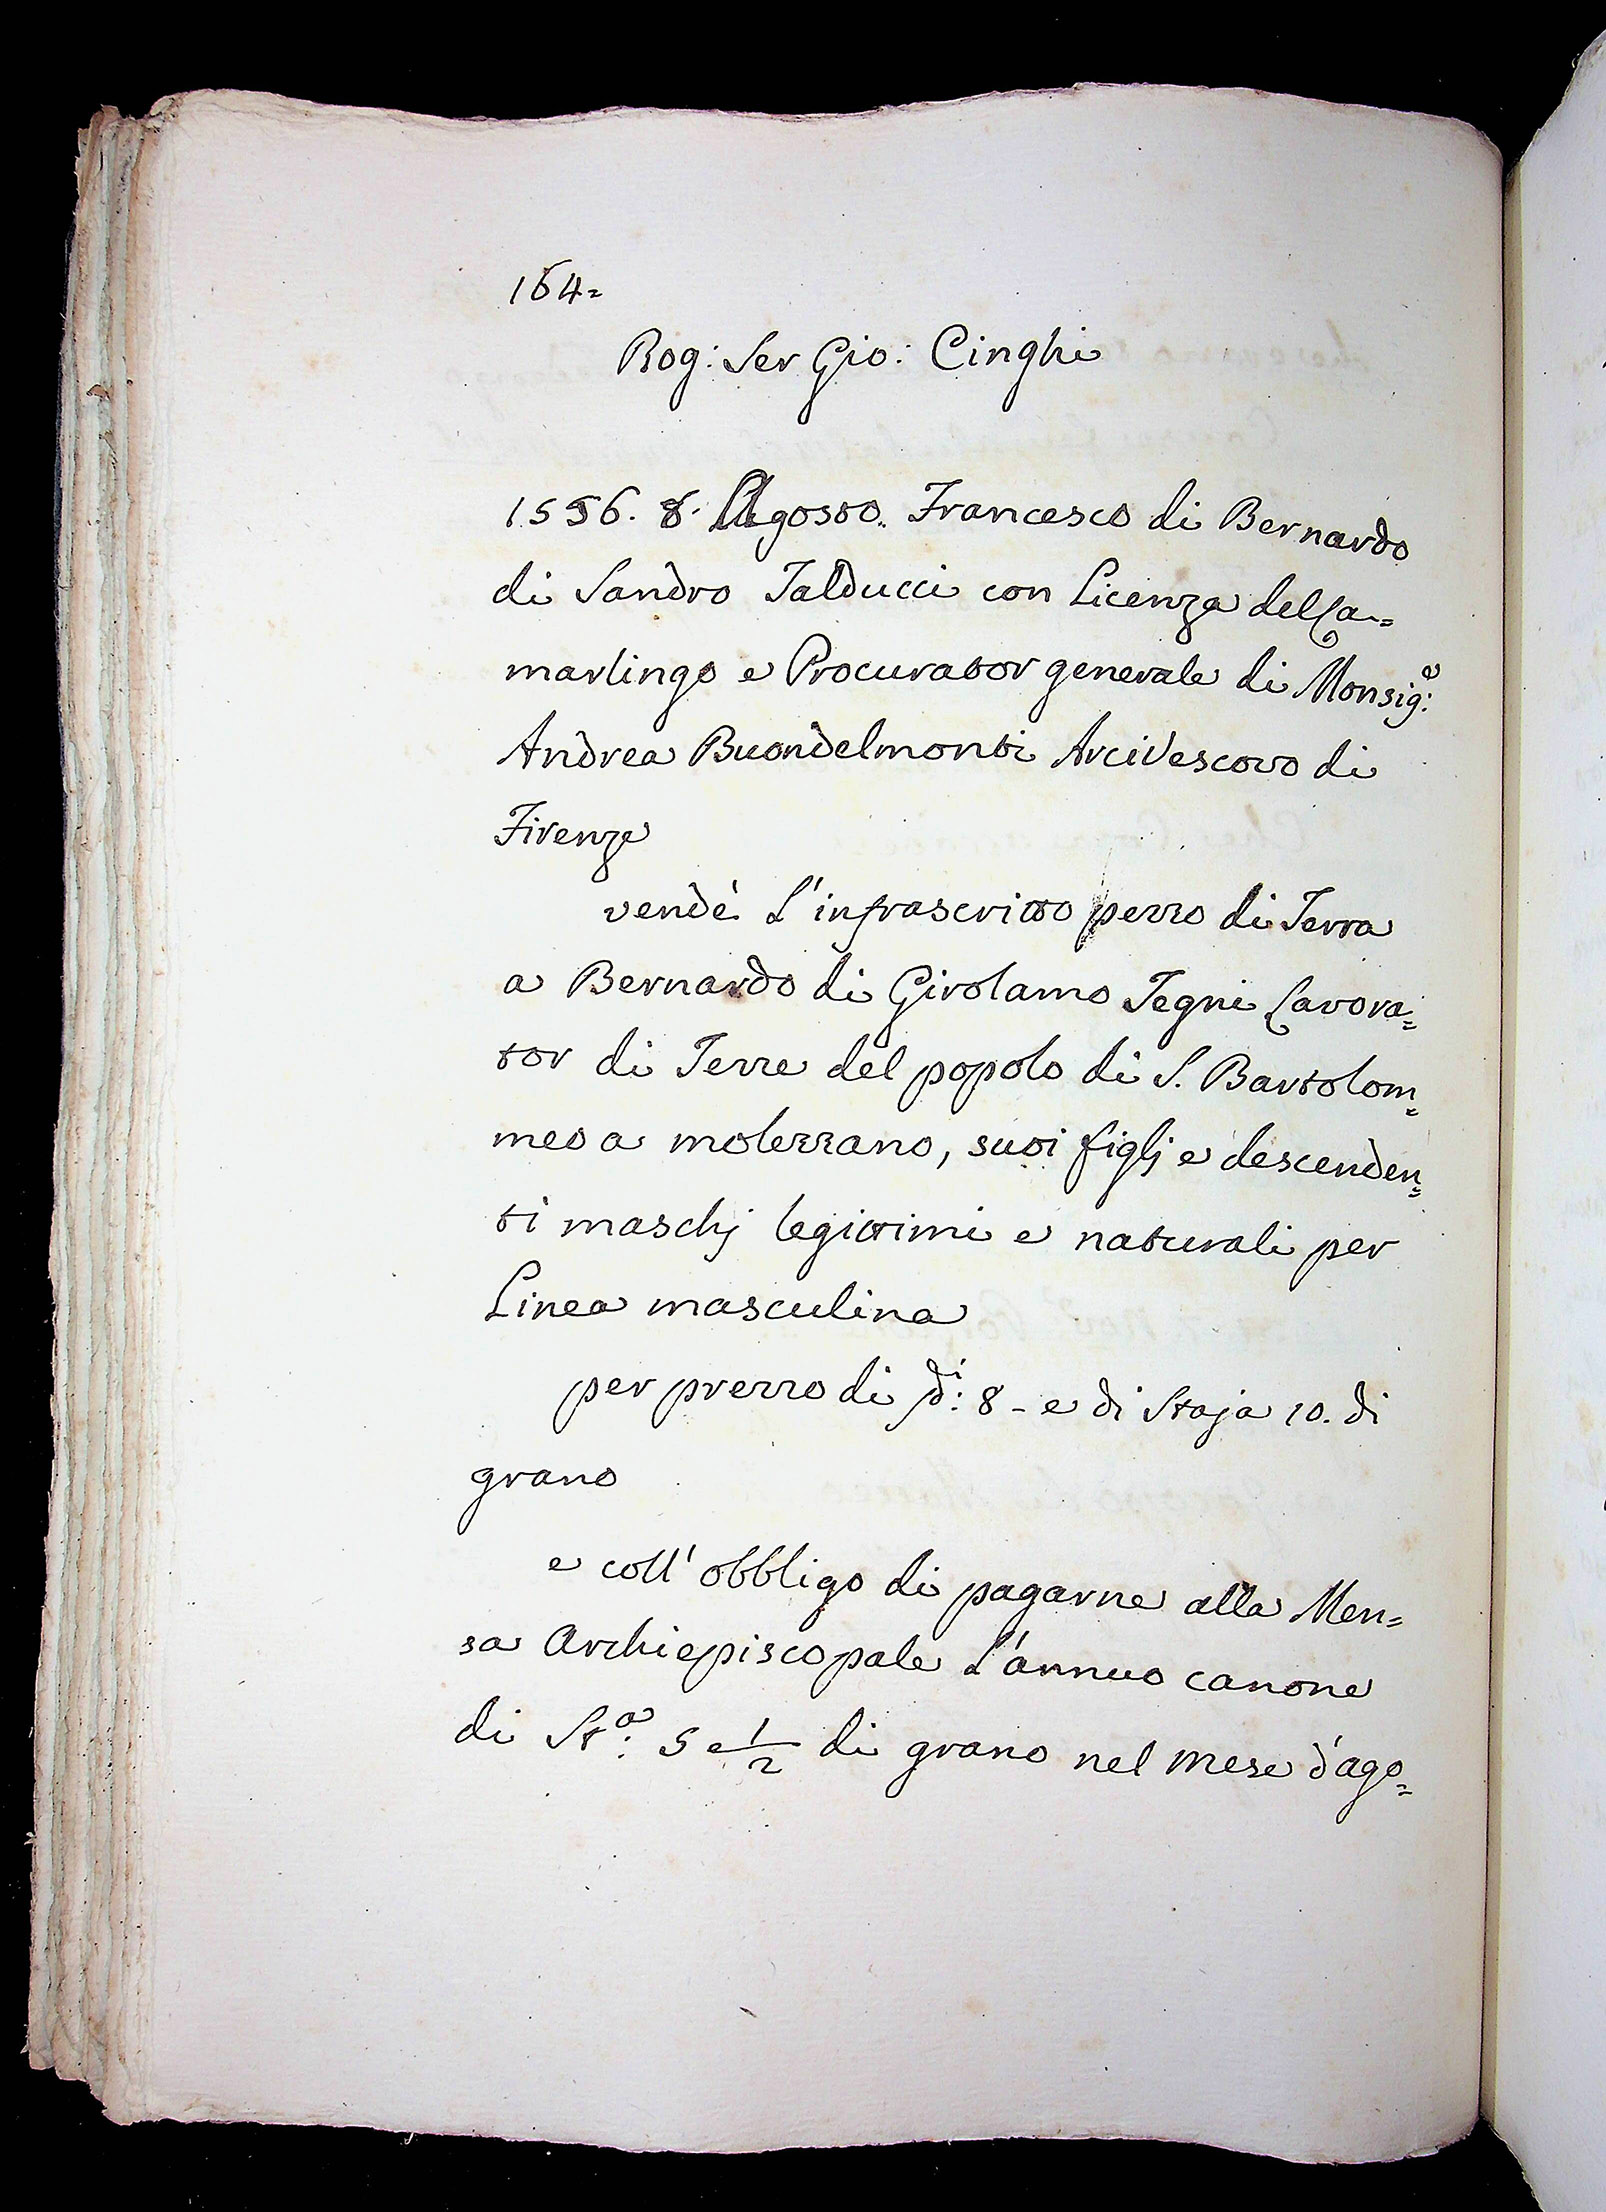 164=
Rog: Ser Gio: Cinghi
1536. 8. Agosto. Francesco di Bernardo
di Sandro Talducci con Licenza del Ca=
marlingo e Procurator generale di Monsig:e
Andrea Buondelmonti Arcivescovo di
Firenze
vendè L'infrascritto pezzo di Terra
a Bernardo di Girolamo Tegni Lavora=
tor di Terre del popolo di S. Bartolom=
meo a molezzano, suoi figlj e descenden=
ti maschj legittimi e naturali per
Linea masculina
per prezzo di 8 - e di Staja 10. di
grano
e coll' obbligo di pagarne alla Men=
sa Archiepiscopale L'annuo canone
di St:a 5 e 1/2 di grano nel mese d'ago=